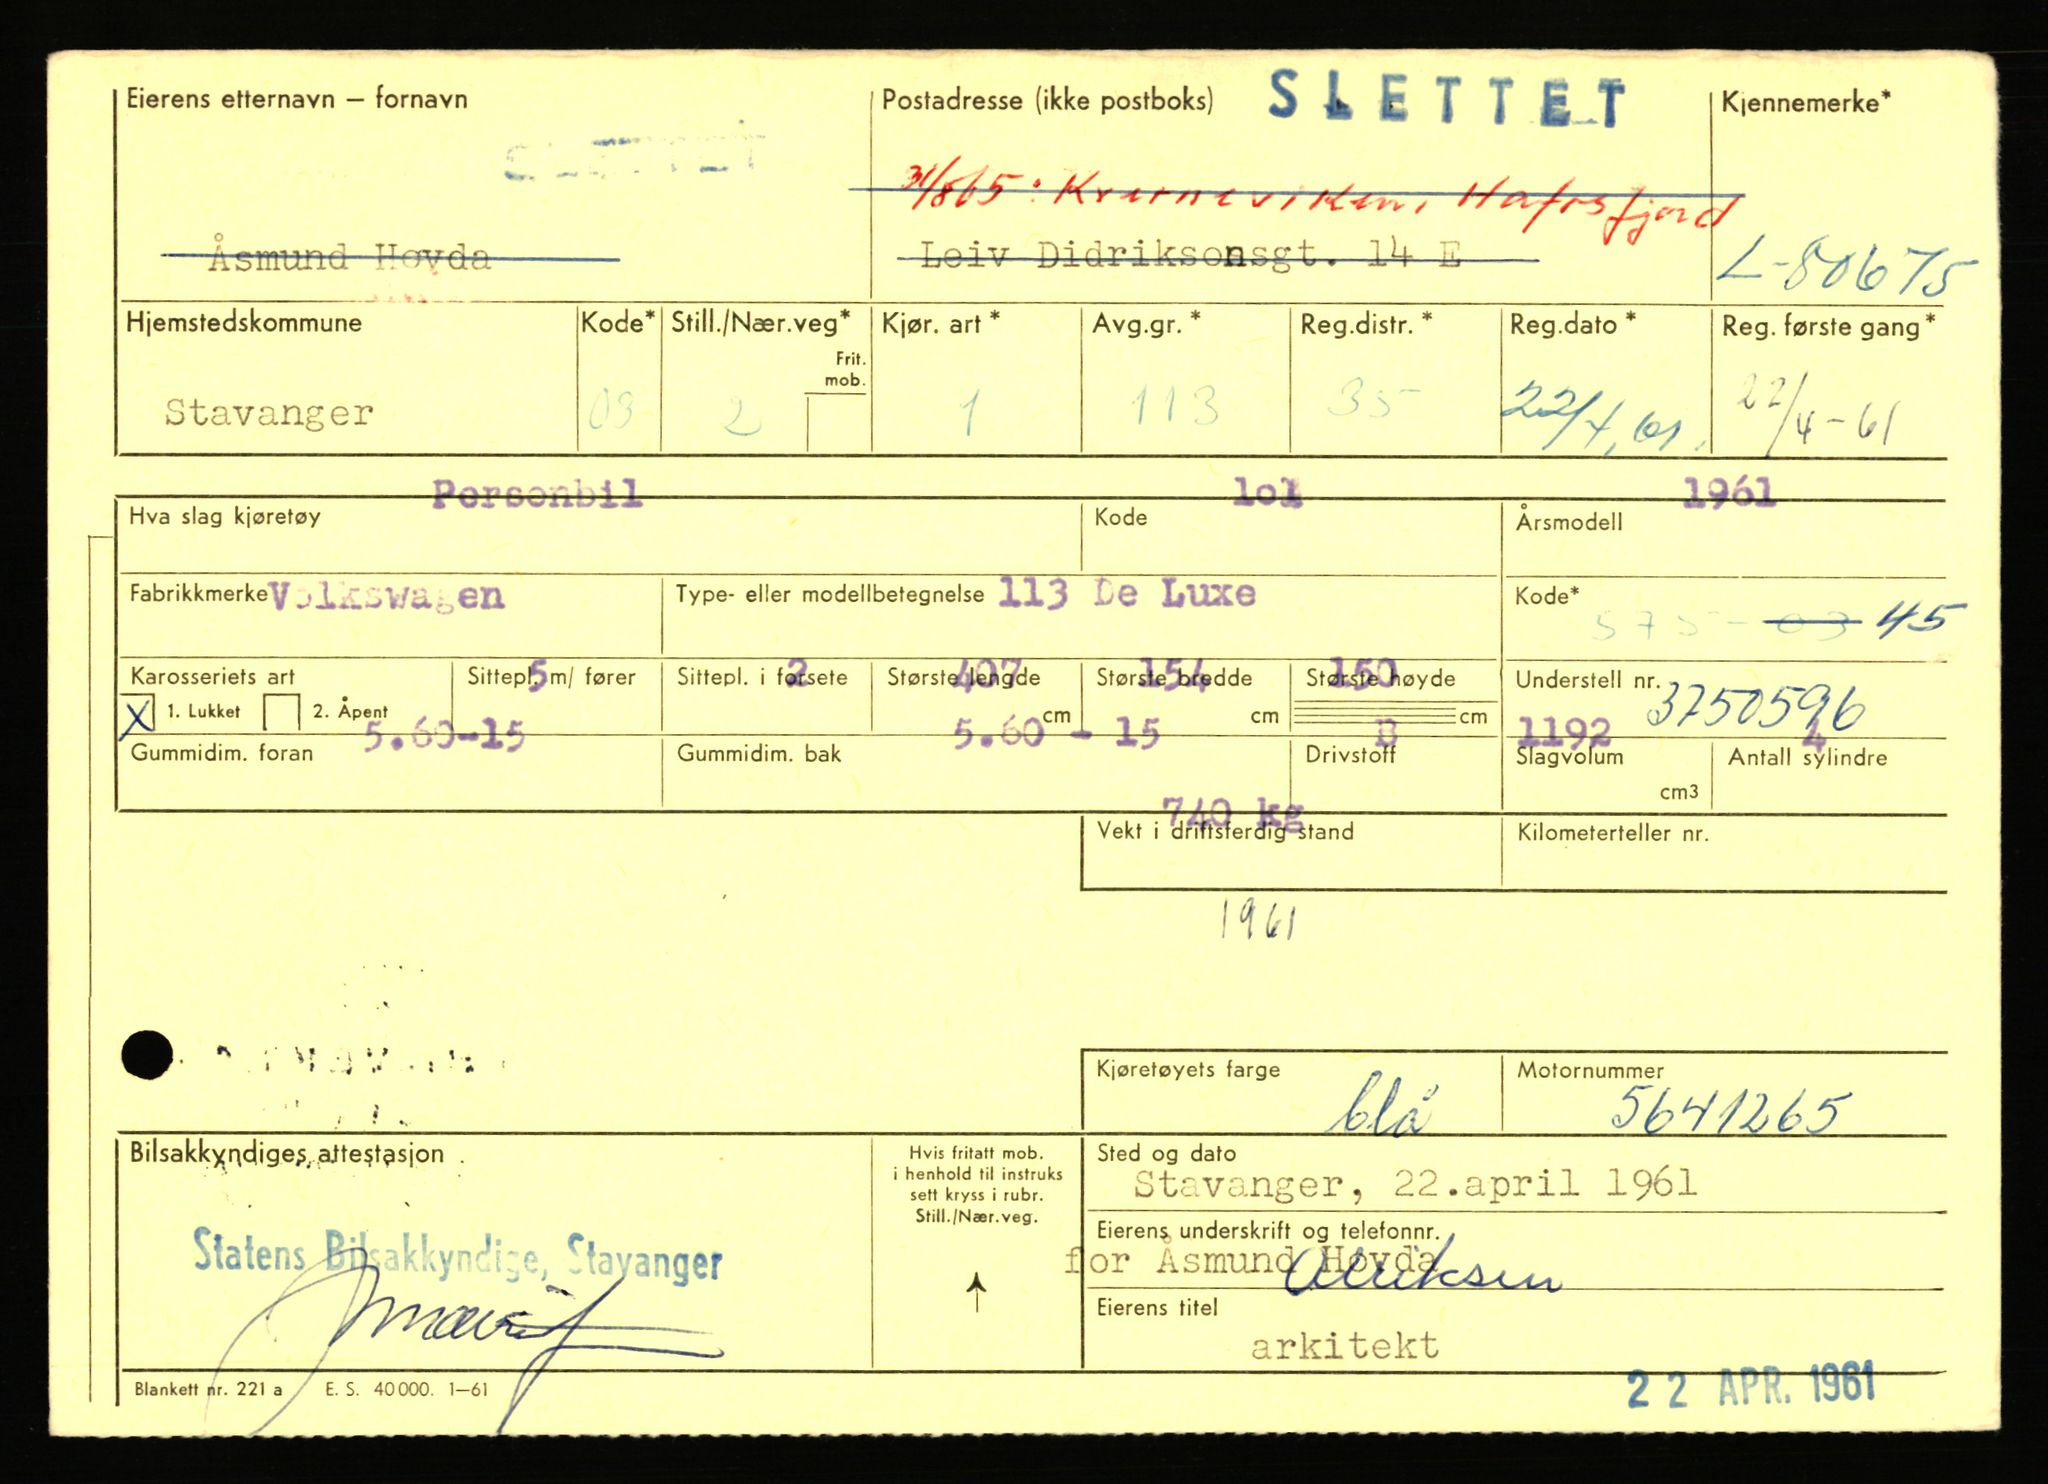 Eierens etternavn – fornavn
Postadresse (ikke postboks)
SLETTET
Kjennemerke*
SLETTET
31/8 65: Kverneviken, Hafrsfjord
Åsmund Hovda
Leiv Didriksonsgt. 14 E
L-80675
Hjemstedskommune
Kode*
Still./Nær.veg*
Frit. mob.
Kjør. art *
Avg.gr. *
Reg.distr. *
Reg.dato *
Reg. første gang *
Stavanger
03
2
1
113
35
22/4, 61.
22/4-61
Personbil
101
1961
Hva slag kjøretøy
Kode
Årsmodell
Fabrikkmerke Volkswagen
Type- eller modellbetegnelse 113 De Luxe
Kode*
575 - 03 45
Karosseriets art
Sittepl. m/ fører 5
Sittepl. i forsete 2
Største lengde 407 cm
Største bredde 154 cm
Største høyde 150 cm
Understell nr. 3750596
X 1. Lukket
2. Åpent
Gummidim. foran 5.60-15
Gummidim. bak 5.60 - 15
Drivstoff B
Slagvolum 1192 cm3
Antall sylindre 4
740 kg
Vekt i driftsferdig stand
Kilometerteller nr.
1961
Kjøretøyets farge
blå
Motornummer
5641265
Bilsakkyndiges attestasjon
Hvis fritatt mob.
i henhold til instruks
sett kryss i rubr.
Still./Nær.veg.
Sted og dato
Stavanger, 22.april 1961
Statens Bilsakkyndige, Stavanger
Eierens underskrift og telefonnr.
for Åsmund Hovda
Eierens titel
arkitekt
Blankett nr. 221 a E. S. 40 000. 1—61
22 APR. 1961